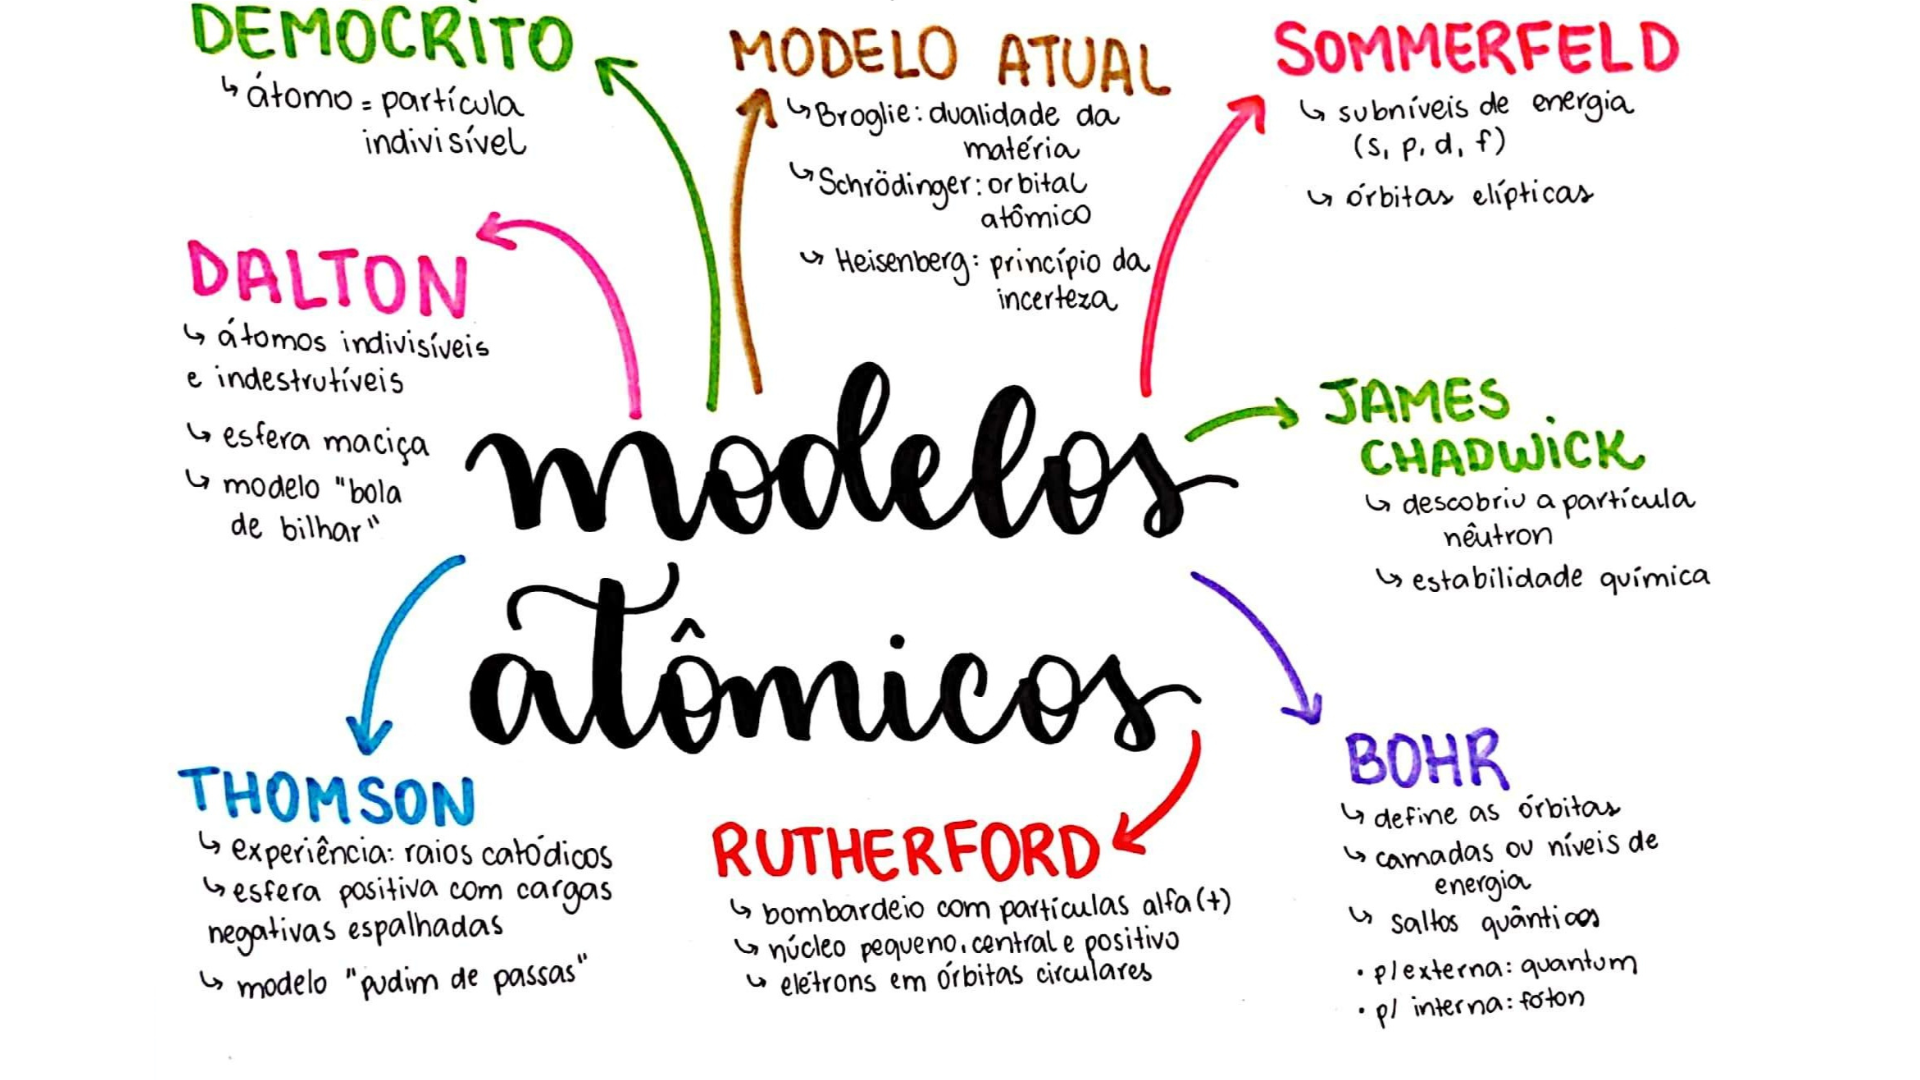 DEMOCRITO
↳ átomo = partícula
indivisível
MODELO ATUAL
↳ Broglie: dualidade da
matéria
↳ Schrödinger: orbital
atômico
↳ Heisenberg: princípio da
incerteza
SOMMERFELD
↳ subníveis de energia
(s, p, d, f)
↳ órbitas elípticas
DALTON
↳ átomos indivisíveis
e indestrutíveis
↳ esfera maciça
↳ modelo "bola
de bilhar"
modelos
atômicos
JAMES
CHADWICK
↳ descobriu a partícula
nêutron
↳ estabilidade química
THOMSON
↳ experiência: raios catódicos
↳ esfera positiva com cargas
negativas espalhadas
↳ modelo "pudim de passas"
RUTHERFORD
↳ bombardeio com partículas alfa (+)
↳ núcleo pequeno, central e positivo
↳ elétrons em órbitas circulares
BOHR
↳ define as órbitas
↳ camadas ou níveis de
energia
↳ saltos quânticos
• p/ externa: quantum
• p/ interna: fóton